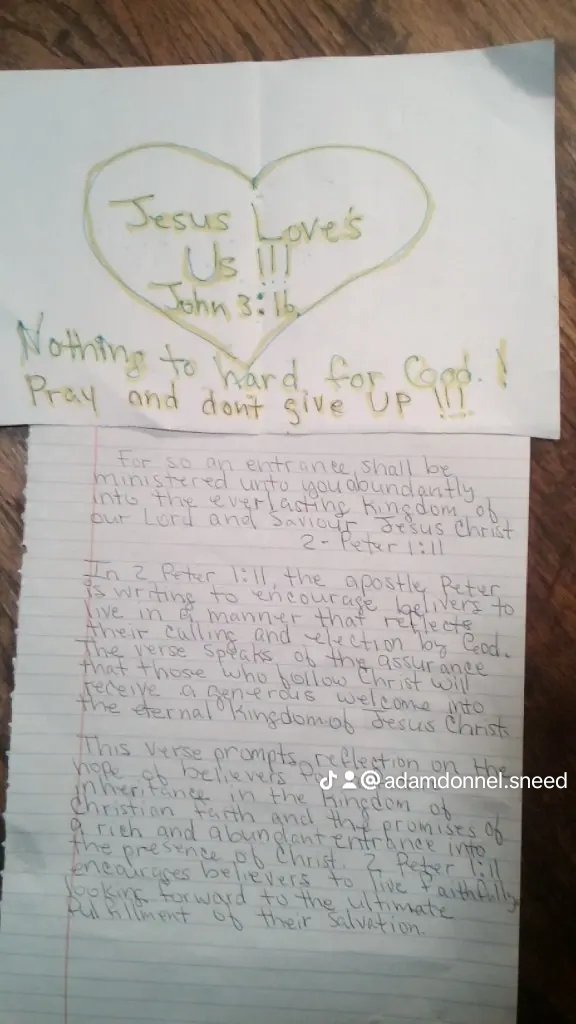 Jesus Love's
Us !!!
John 3:16
Nothing to hard for God.!
Pray and dont give UP !!!
For so an entrance shall be
ministered unto you abundantly
into the everlasting Kingdom of
our Lord and Saviour Jesus Christ
2 - Peter 1:11
In 2 Peter 1:11, the apostle Peter
is writing to encourage belivers to
live in a manner that reflects
their calling and election by God.
The verse speaks of the assurance
that those who follow Christ will
receive a generous welcome into
the eternal Kingdom of Jesus Christ
This verse prompts reflection on the
hope of believers
@adamdonnel.sneed
inheritance in the Kingdom of
Christian faith and the promises of
a rich and abundant entrance into
the presence of Christ. 2 Peter 1:11
encourages believers to live faithfully
looking forward to the ultimate
fulfillment of their salvation.